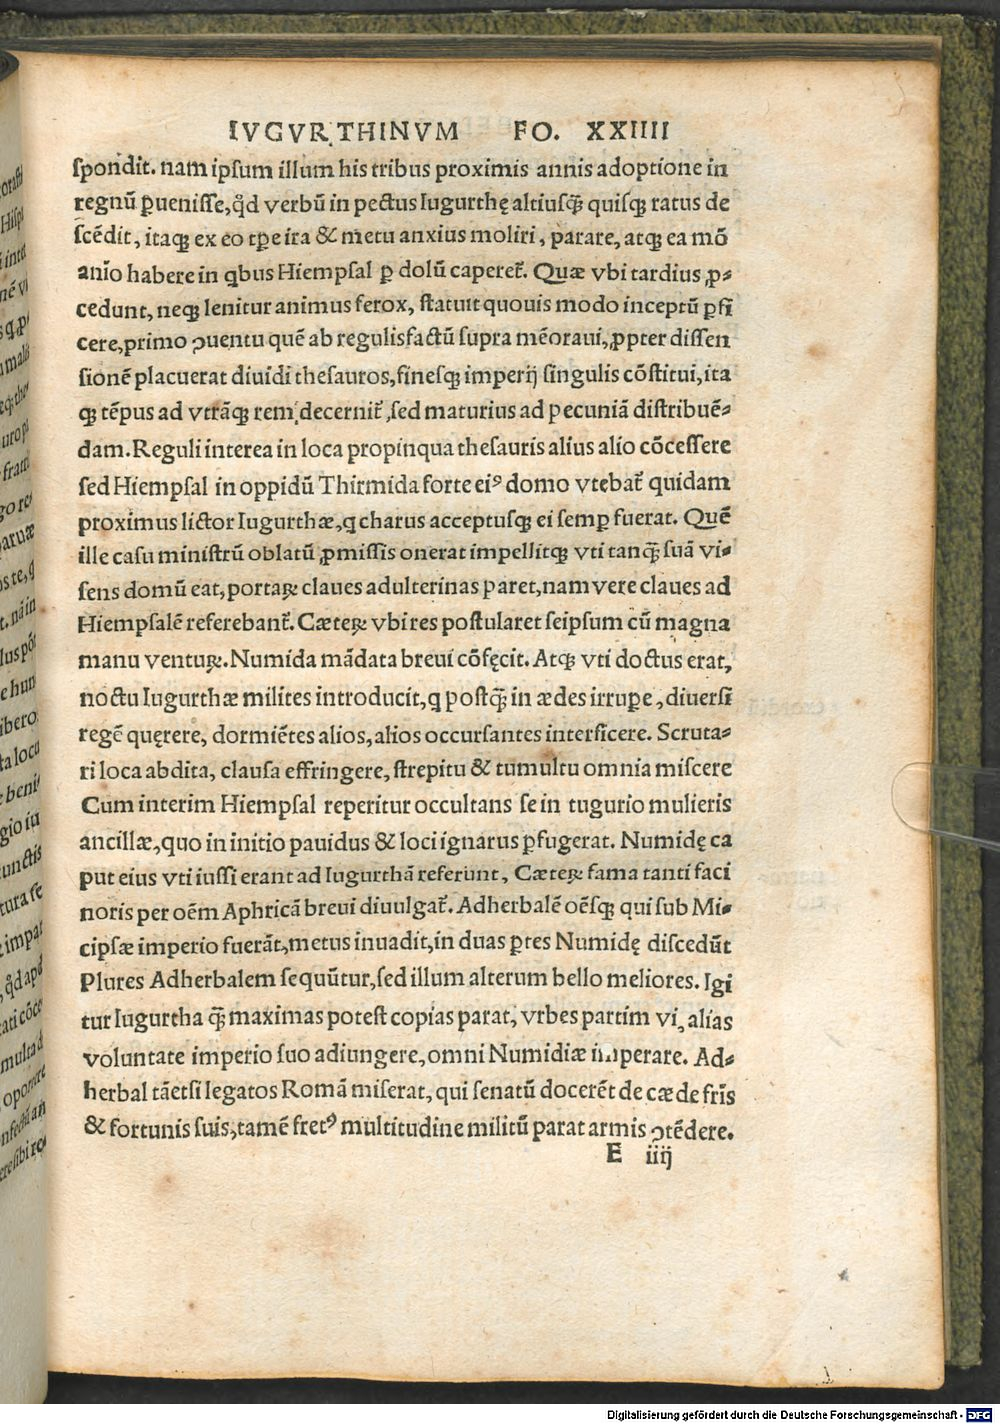 IVGVRTHINVM FO. XXIIII
spondit. nam ipsum illum his tribus proximis annis adoptione in
regnū ꝑuenisse, qđ verbū in pectus Iugurthę altiusq̃ quisq; ratus de
scēdit, itaq; ex eo tꝑe ira & metu anxius moliri, parare, atq; ea mō
anīo habere in qbus Hiempsal ꝑ dolū caperet̃. Quæ vbi tardius ꝓ-
cedunt, neq; lenitur animus ferox, statuit quouis modo inceptū ꝑfi
cere, primo ꝯuentu quē ab regulis factū supra mēoraui, ꝓpter dissen
sionē placuerat diuidi thesauros, finesq; imperij singulis cōstitui, ita
q; tēpus ad vtrāq; rem decernit̃, sed maturius ad pecuniā distribuē-
dam. Reguli interea in loca propinqua thesauris alius alio cōcessere
sed Hiempsal in oppidū Thirmida forte eiꝰ domo vtebat̃ quidam
proximus lictor Iugurthæ, q charus acceptusq; ei semꝑ fuerat. Quē
ille casu ministrū oblatū ꝓmissis onerat impellitq; vti tanq̃ suā vi-
sens domū eat, portaꝝ claues adulterinas paret, nam vere claues ad
Hiempsalē referebant̃. Cæteꝝ vbi res postularet seipsum cū magna
manu ventuꝝ. Numida mādata breui cōfęcit. Atq; vti doctus erat,
noctu Iugurthæ milites introducit, q postq̃ in ædes irruꝑe, diuersi
regē quęrere, dormiētes alios, alios occursantes interficere. Scruta-
ri loca abdita, clausa effringere, strepitu & tumultu omnia miscere
Cum interim Hiempsal reperitur occultans se in tugurio mulieris
ancillæ, quo in initio pauidus & loci ignarus ꝑfugerat. Numidę ca
put eius vti iussi erant ad Iugurthā referunt, Cæteꝝ fama tanti faci
noris per oēm Aphricā breui diuulgat̃. Adherbalē oēsq; qui sub Mi-
cipsæ imperio fuerāt, metus inuadit, in duas ꝑtes Numidę discedūt
Plures Adherbalem sequūtur, sed illum alterum bello meliores. Igi
tur Iugurtha q̃ maximas potest copias parat, vrbes partim vi, alias
voluntate imperio suo adiungere, omni Numidiæ imperare. Ad-
herbal tāetsi legatos Romā miserat, qui senatū docerēt de cæde fr̃is
& fortunis suis, tamē fretꝰ multitudine militū parat armis ꝯtēdere.
E iiij
Digitalisierung gefördert durch die Deutsche Forschungsgemeinschaft - DFG